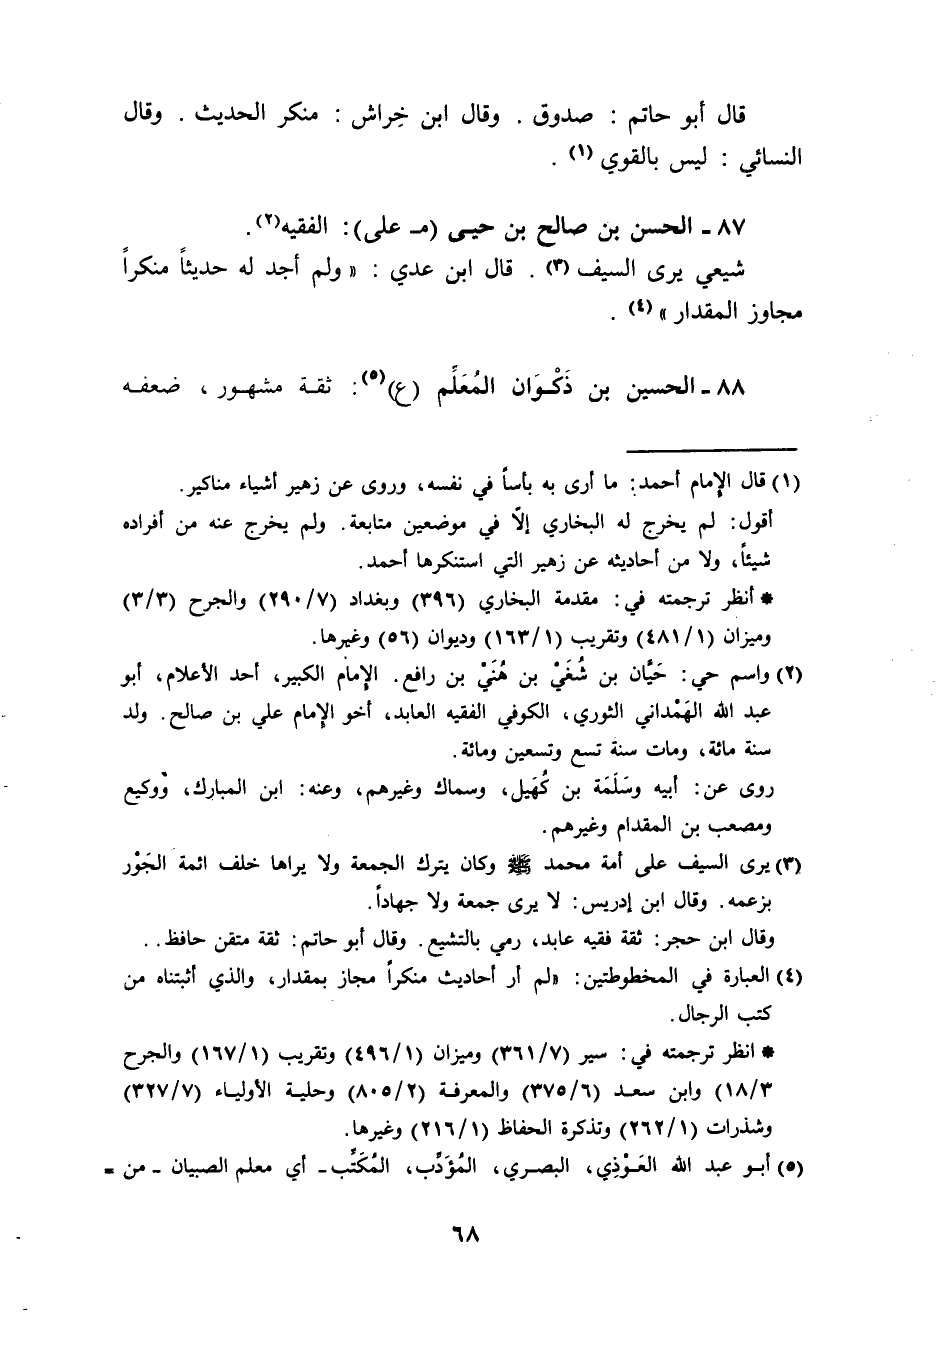 قال أبو حاتم : صدوق . وقال ابن خِراش : منكر الحديث . وقال
النسائي : ليس بالقوي (١) .
٨٧ ـ الحسن بن صالح بن حيـى (مـ على) : الفقيه(٢).
شيعي يرى السيف (٣) . قال ابن عدي : « ولم أجد له حديثاً منكراً
مجاوز المقدار » (٤) .
٨٨ ـ الحسين بن ذَكْـوَان المُعَلِّم (ع)(٥): ثقـة مشهـور ، ضعفـه
(١) قال الإمام أحمد: ما أرى به بأساً في نفسه، وروى عن زهير أشياء مناكير.
أقول: لم يخرج له البخاري إلّا في موضعين متابعة. ولم يخرج عنه من أفراده
شيئاً، ولا من أحاديثه عن زهير التي استنكرها أحمد.
* أنظر ترجمته في: مقدمة البخاري (٣٩٦) وبغداد (٢٩٠/٧) والجرح (٣/٣)
وميزان (٤٨١/١) وتقريب (١٦٣/١) وديوان (٥٦) وغيرها.
(٢) واسم حي: حَيَّان بن شُغَيْ بن هُنَيْ بن رافع. الإمام الكبير، أحد الأعلام، أبو
عبد الله الهَمْداني الثوري، الكوفي الفقيه العابد، أخو الإمام علي بن صالح. ولد
سنة مائة، ومات سنة تسع وتسعين ومائة.
روى عن: أبيه وسَلَمَة بن كُهَيل، وسماك وغيرهم، وعنه: ابن المبارك، ووكيع
ومصعب بن المقدام وغيرهم.
(٣) يرى السيف على أمة محمد ﷺ وكان يترك الجمعة ولا يراها خلف ائمة الجَوْر
بزعمه. وقال ابن إدريس: لا يرى جمعة ولا جهاداً.
وقال ابن حجر: ثقة فقيه عابد، رمي بالتشيع. وقال أبو حاتم: ثقة متقن حافظ. .
(٤) العبارة في المخطوطتين: «لم أر أحاديث منكراً مجاز بمقدار، والذي أثبتناه من
كتب الرجال.
* انظر ترجمته في: سير (٣٦١/٧) وميزان (٤٩٦/١) وتقريب (١٦٧/١) والجرح
١٨/٣) وابن سعـد (٣٧٥/٦) والمعرفـة (٨٠٥/٢) وحليـة الأوليـاء (٣٢٧/٧)
وشذرات (٢٦٢/١) وتذكرة الحفاظ (٢١٦/١) وغيرها.
(٥) أبـو عبد الله العَـوْذِي، البصـري، المُؤَدِّب، المُكَتِّب ـ أي معلم الصبيان ـ من =
٦٨